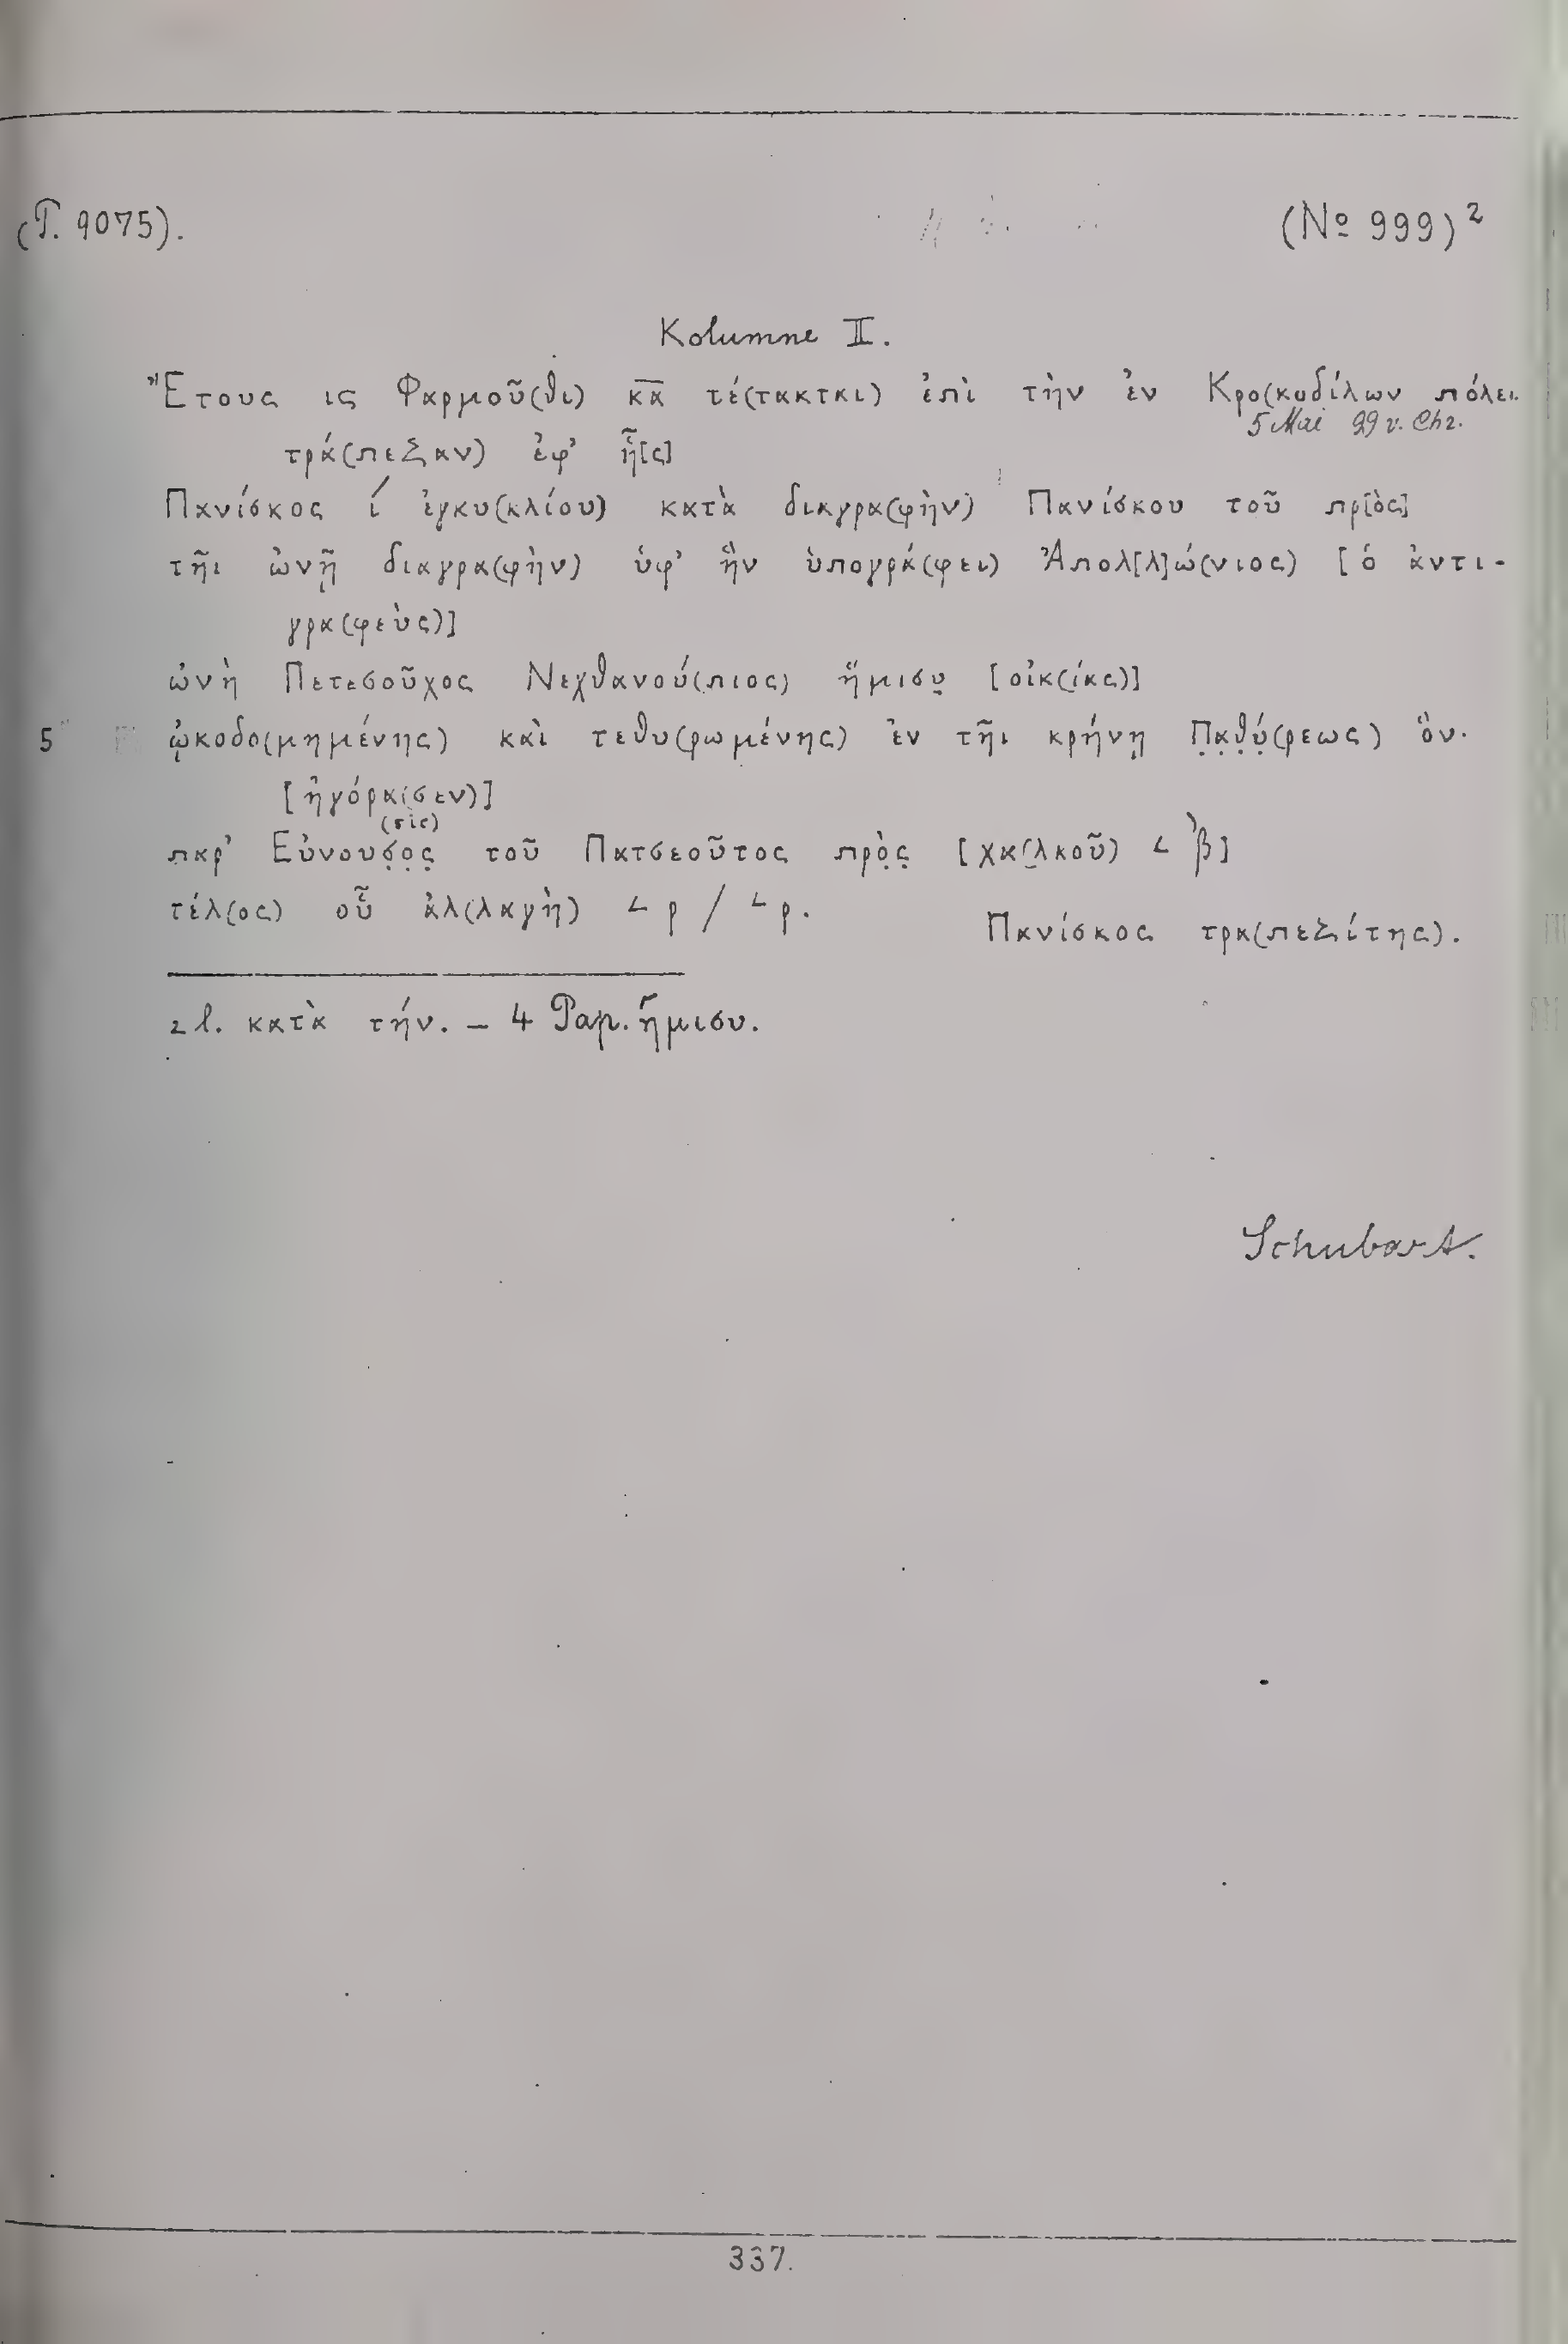 (P. 9075).
(No 999)²
Kolumne II.
Ἔτους ις Φαρμοῦ(θι) κ̅α̅ τέ(τακται) ἐπὶ τὴν ἐν Κρο(κοδίλων πόλει
5 Mai 99 v. Chr.
τρά(πεζαν) ἐφ' ἧ[ς]
Πανίσκος ί ἐγκυ(κλίου) κατὰ διαγρα(φὴν) Πανίσκου τοῦ πρ[ὸς]
τῆι ὠνῇ διαγρα(φὴν) ὑφ' ἣν ὑπογρά(φει) Ἀπολ[λ]ώ(νιος) [ὁ ἀντι-
γρα(φεὺς)]
ὠνὴ Πετεσοῦχος Νεχθανού(πιος) ἥμισυ̣ [οἰκ(ίας)]
5 ᾠκοδο(μημένης) καὶ τεθυ(ρωμένης) ἐν τῆι κρήνῃ Π̣α̣θ̣ύ̣(ρεως) ὃν.
[ἠγόρα(σεν)]
(sic)
παρ' Εὐνουσ̣ο̣ς̣ τοῦ Πατσεοῦτος πρὸ̣ς̣ [χα(λκοῦ) ∠ ͵β]
τέλ(ος) οὗ ἀλ(λαγὴ) ∠ ρ / ∠ ρ.
Πανίσκος τρα(πεζίτης).
2 l. κατὰ τήν. — 4 Pap. ἥμισυ.
Schubart.
337.